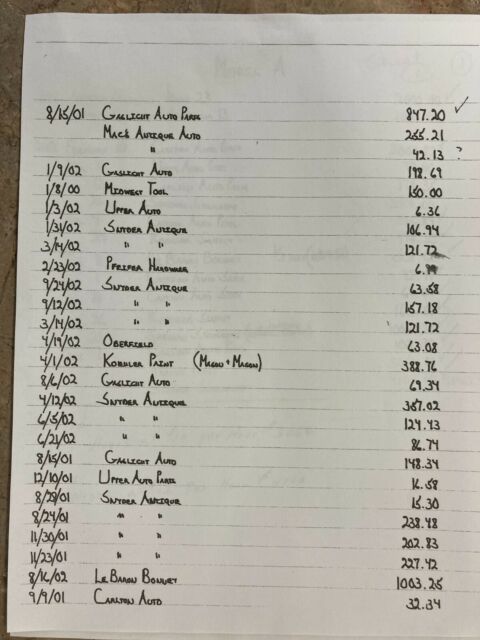 8/15/01 Gaslight Auto Parts 847.20 ✓
Macs Antique Auto 255.21
" 42.13 ?
1/9/02 Gaslight Auto 198.69
1/8/00 Midwest Tool 150.00
1/3/02 Upper Auto 6.36
1/31/02 Snyder Antique 106.94
3/14/02 " " 121.72
2/23/02 Pfeifer Hardware
9/24/02 Snyder Antique 63.58
9/12/02 " " 157.18
3/14/02 " " 121.72
4/19/02 Oberfield 63.08
4/1/02 Kobuler Paint (Mason + Mason) 388.76
8/6/02 Gaslight Auto 69.34
4/12/02 Snyder Antique 357.02
6/5/02 " " 124.43
6/21/02 " " 86.74
8/15/01 Gaslight Auto 148.34
12/10/01 Upper Auto Parts 16.58
8/29/01 Snyder Antique 15.30
8/24/01 " " 238.48
11/30/01 " " 202.83
11/23/01 " " 227.42
8/16/02 LeBaron Bonney 1003.25
9/9/01 Carlton Auto 32.34